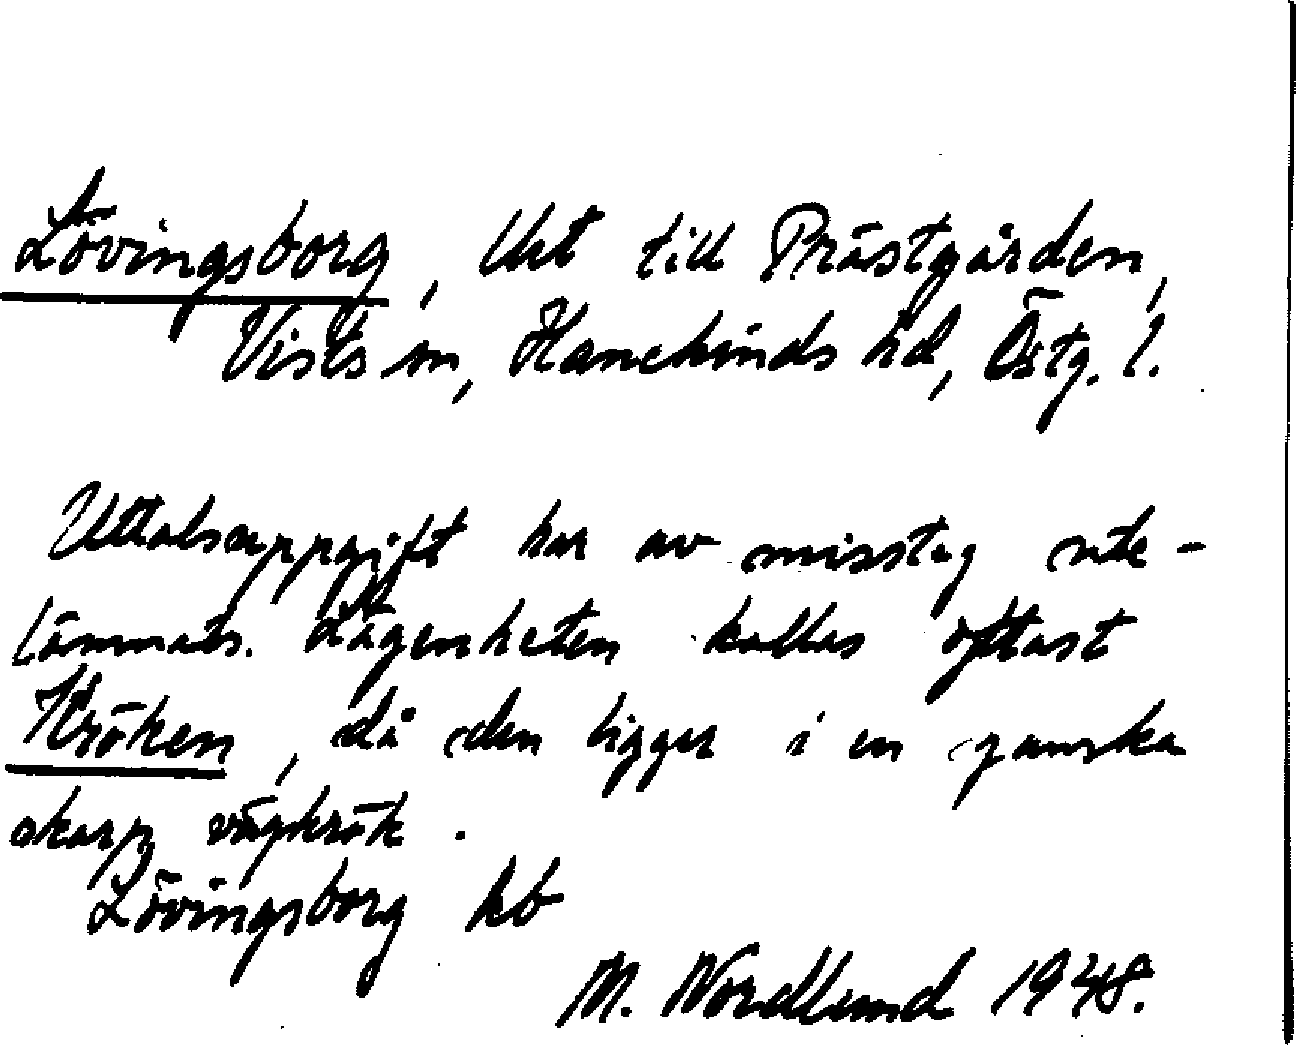 Lövingsborg, lht till Prästgården,
Vists sn, Hanekinds hd, Östg. l.
Uttalsuppgift har av misstag ute-
lämnats. Lägenheten kallas oftast
Kröken, då den ligger i en ganska
skarp vägkrök.
Lövingsborg kb
M. Nordlund 1948.